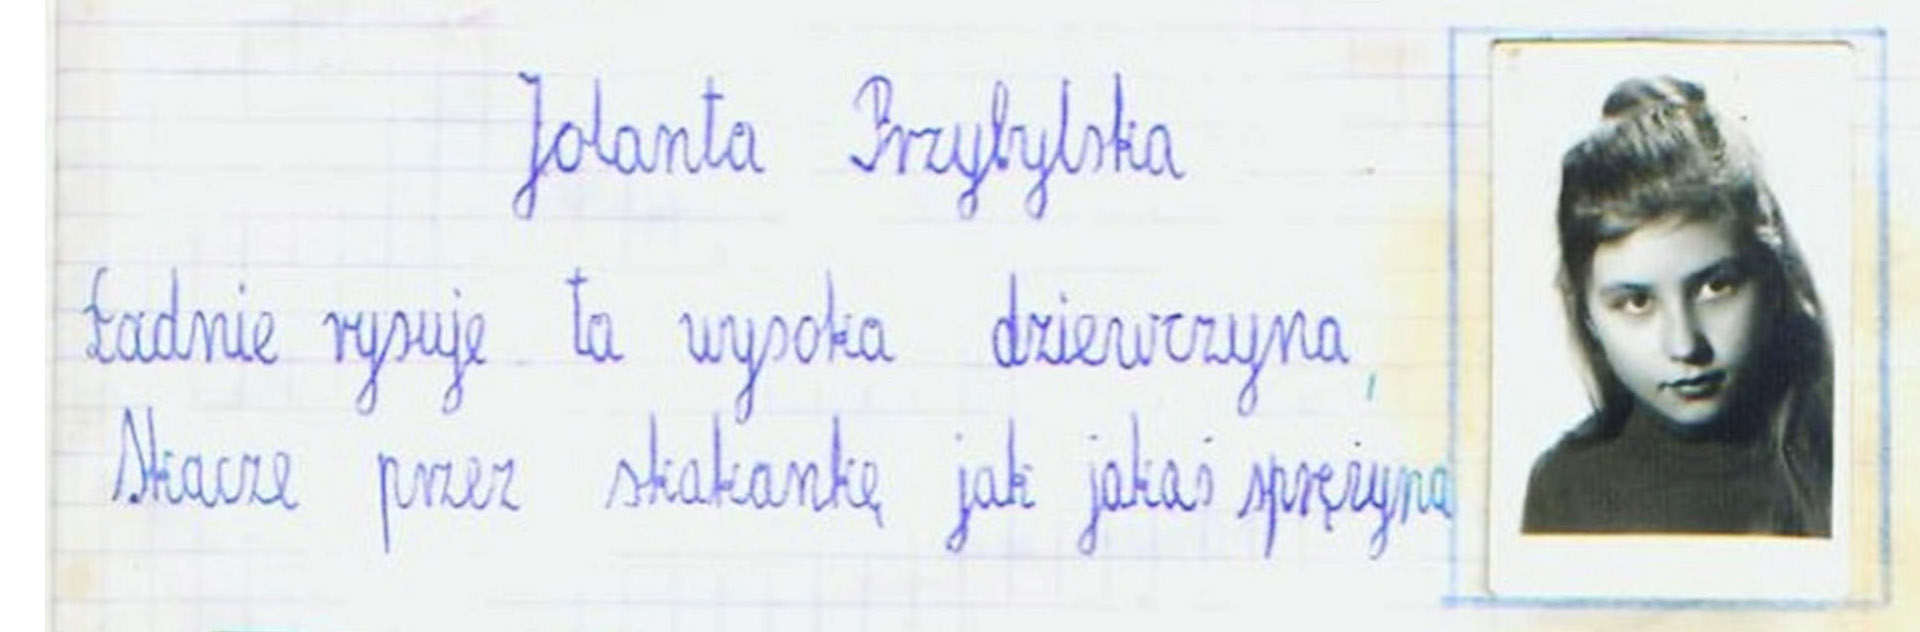 Jolanta Przybylska
Ładnie rysuje ta wysoka dziewczyna,
Skacze przez skakankę jak jakaś sprężyna